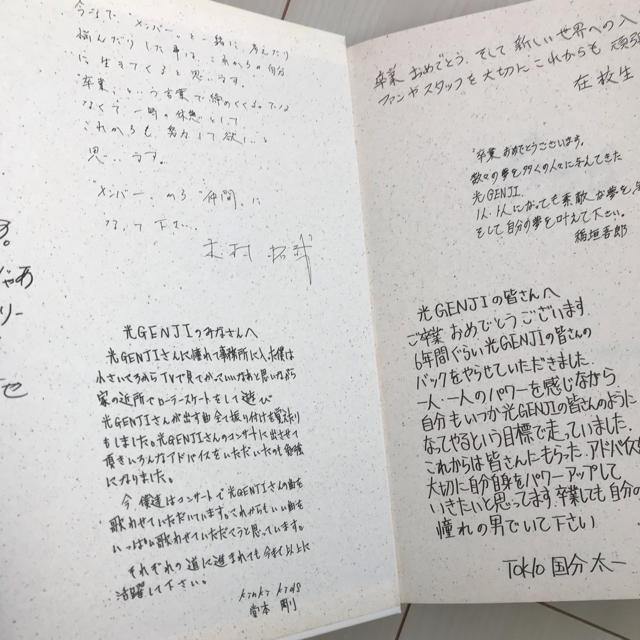 今まで"メンバー"と一緒に考えたり
悩んだりした事は、これからの自分
に生きてくると思います。
"卒業"という言葉で締めくくるのでは
なく、一時の休憩として
これからも努力して欲しいと
思います。
"メンバー"から"仲間"に
なって下さい。
木村拓哉
光GENJIのみなさんへ
光GENJIさんに憧れて事務所に入った僕は
小さいころからTVで見てかっこいいなぁと思いながら
家の近所でローラースケートをして遊び
光GENJIさんが出す曲全て振り付けを覚えたり
もしました。光GENJIさんのコンサートに出させて
頂きいろんなアドバイスをいただいたのも勉強
になりました。
今、僕達はコンサートで光GENJIさんの曲を
歌わせていただいています。これからもいい曲を
いっぱい歌わせていただこうと思っています。
それぞれの道に進まれても今まで以上に
活躍して下さい。
kinki kids
堂本 剛
る。
ゃあ
リー
せ
卒業おめでとう。そして新しい世界への入
ファンやスタッフを大切にこれからも頑張
在校生
卒業おめでとうございます。
数々の夢を多くの人々に与えてきた
光GENJI.
1人1人になっても素敵な夢を
そして自分の夢を叶えて下さい。
稲垣吾郎
光GENJIの皆さんへ
ご卒業おめでとうございます
6年間ぐらい光GENJIの皆さんの
バックをやらせていただきました。
一人一人のパワーを感じながら
自分もいつか光GENJIの皆さんのように
なってやるという目標で走っていました。
これからは皆さんにもらったアドバイスを
大切に自分自身をパワーアップして
いきたいと思ってます。卒業しても自分の
憧れの男でいて下さい
TOKIO 国分太一